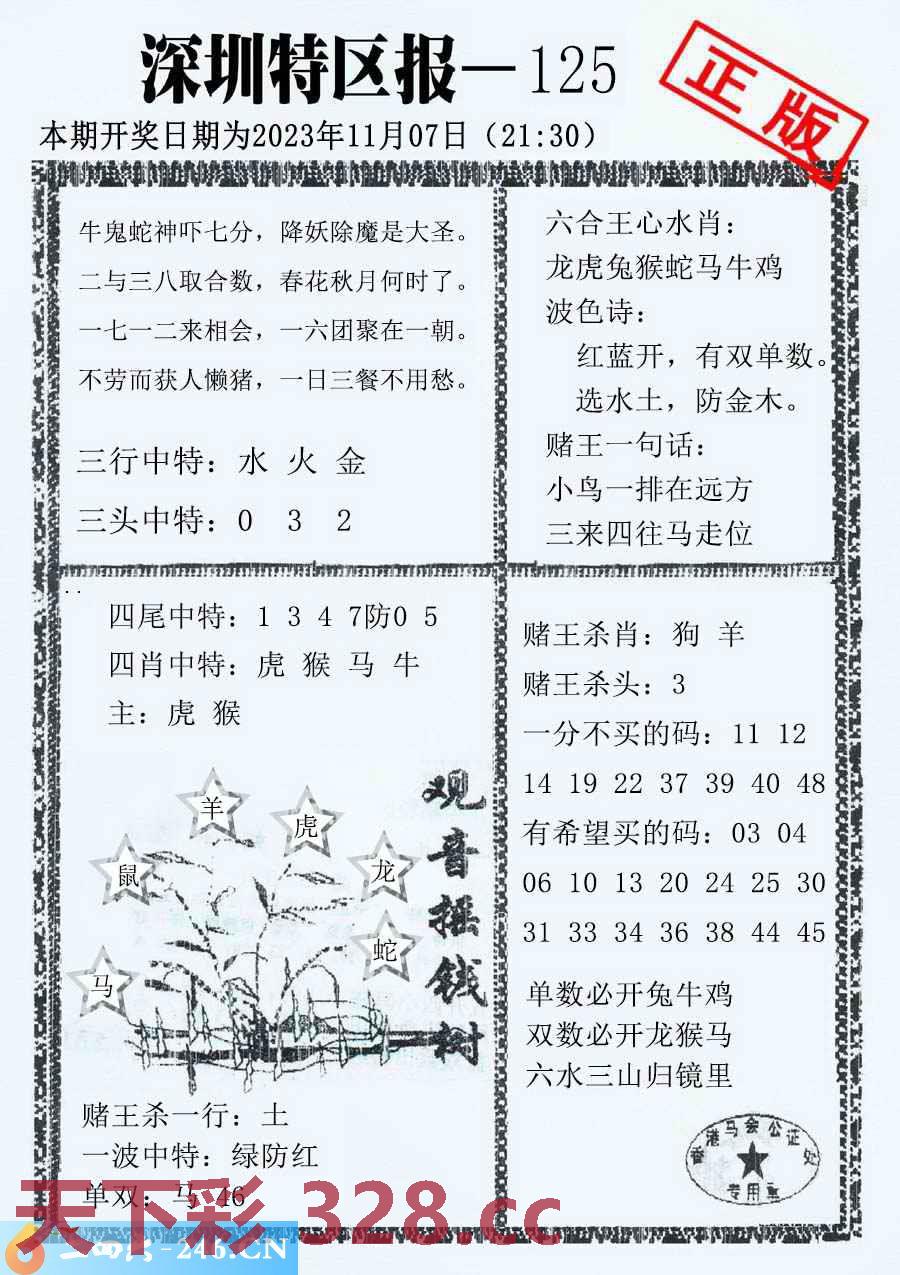 深圳特区报—125
正版
本期开奖日期为2023年11月07日（21:30）
牛鬼蛇神吓七分，降妖除魔是大圣。
二与三八取合数，春花秋月何时了。
一七一二来相会，一六团聚在一朝。
不劳而获人懒猪，一日三餐不用愁。
三行中特：水 火 金
三头中特：0 3 2
六合王心水肖：
龙虎兔猴蛇马牛鸡
波色诗：
红蓝开，有双单数。
选水土，防金木。
赌王一句话：
小鸟一排在远方
三来四往马走位
四尾中特：1 3 4 7防0 5
四肖中特：虎 猴 马 牛
主：虎 猴
羊
虎
鼠
龙
蛇
马
观音摇钱树
赌王杀一行：土
一波中特：绿防红
单双：马 46
赌王杀肖：狗 羊
赌王杀头：3
一分不买的码：11 12
14 19 22 37 39 40 48
有希望买的码：03 04
06 10 13 20 24 25 30
31 33 34 36 38 44 45
单数必开兔牛鸡
双数必开龙猴马
六水三山归镜里
香港马会公证处
专用章
天下彩 328.cc
-246.CN